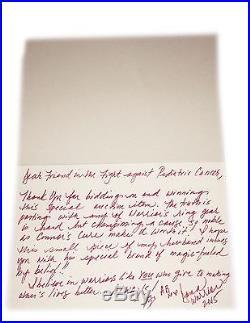 Dear Friend in the Fight against Pediatric Cancer,
Thank You for bidding on and winning
this special auction item. The truth is
parting with any of Warrior's ring gear
is hard but championing a cause so noble
as Connor's Cure makes it worth it! I hope
this small piece of my husband infuses
you with his special brand of magic-fueled
by belief!!
I believe in warriors like You who give to making
other's lives better.
Warrior
2015